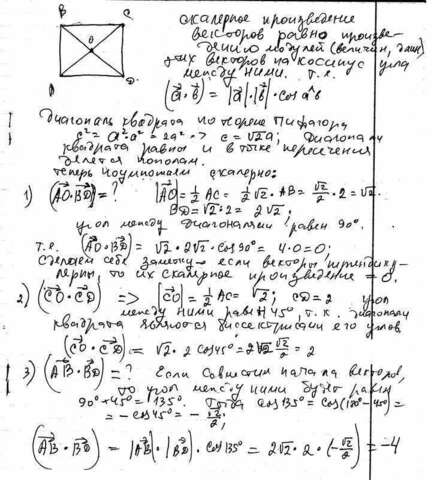 B C
O
A D
скалярное произведение
векторов равно произве-
дению модулей (величин, длин)
этих векторов на косинус угла
между ними. т.е.
(a⃗·b⃗) = |a⃗|·|b⃗|·cos a^b
Диагональ квадрата по теореме Пифагора
c² = a²+a² = 2a² => c = √2a; Диагонали
квадрата равны и в точке пересечения
делятся пополам.
теперь поумножаем скалярно:
1) (AO⃗·BD⃗) = ? |AO⃗| = 1/2 AC = 1/2 √2·AB = √2/2 · 2 = √2.
BD = √2·2 = 2√2;
угол между диагоналями равен 90°.
т.е. (AO⃗·BD⃗) = √2·2√2·cos90° = 4·0 = 0;
сделаем себе заметку - если векторы перпендику-
лярны, то их скалярное произведение = 0.
2) (CO⃗·CD⃗) => |CO⃗| = 1/2 AC = √2; CD = 2 угол
между ними равен 45°, т.к. диагонали
квадрата являются биссектрисами его углов
(CO⃗·CD⃗) = √2·2 cos45° = 2√2·√2/2 = 2
3) (AB⃗·BD⃗) = ? Если совместим начала векторов,
то угол между ними будет равен
90°+45° = 135°. Тогда cos135° = cos(180°-45°) =
= -cos45° = -√2/2;
(AB⃗·BD⃗) = |AB⃗|·|BD⃗|·cos135° = 2√2·2·(-√2/2) = -4